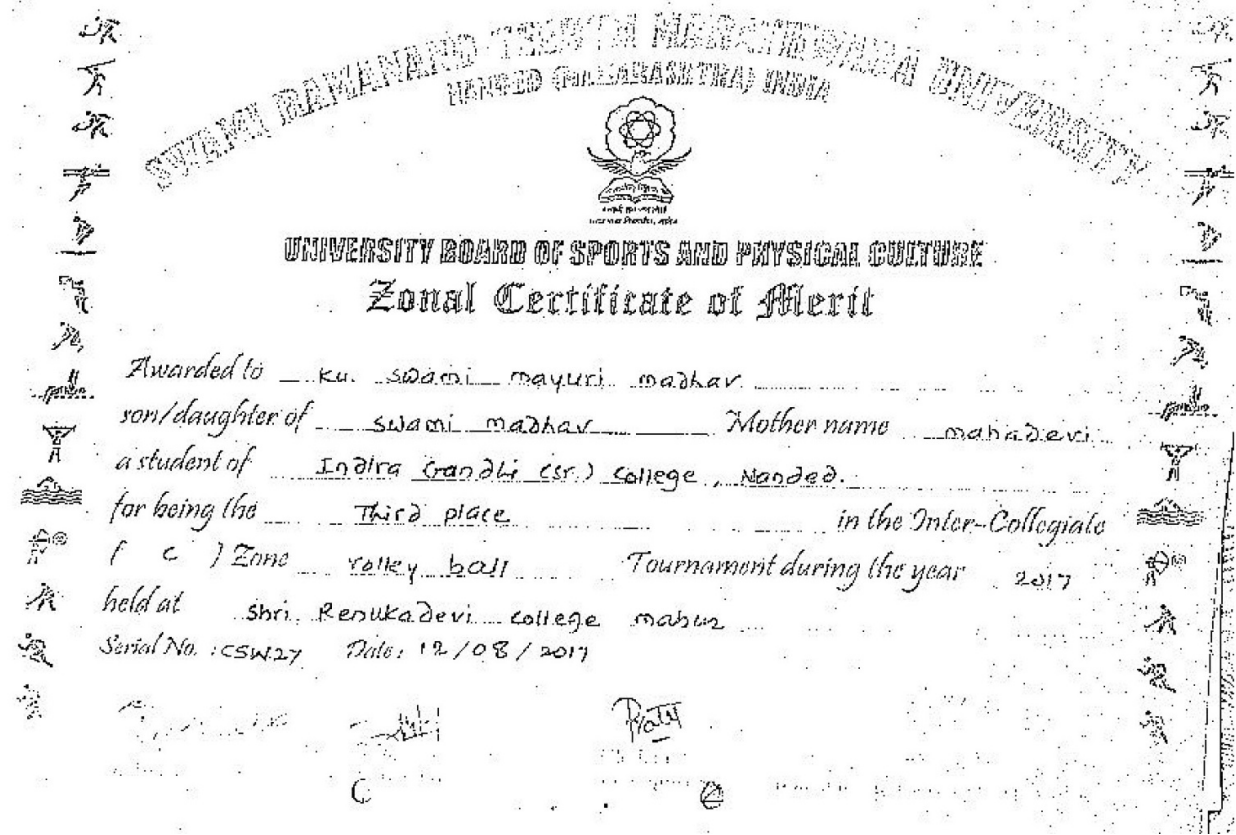 SWAMI RAMANAND TEERTH MARATHWADA UNIVERSITY
NANDED (MAHARASHTRA) INDIA
UNIVERSITY BOARD OF SPORTS AND PHYSICAL CULTURE
Zonal Certificate of Merit
Awarded to Ku. Swami mayuri madhav
son/daughter of Swami madhav Mother name mahadevi
a student of Indira Gandhi (Sr.) College, Nanded.
for being the Third place in the Inter-Collegiate
( C ) Zone Volley ball Tournament during the year 2017
held at Shri. Renukadevi College mahur
Serial No. : CSW27 Date: 12/08/2017